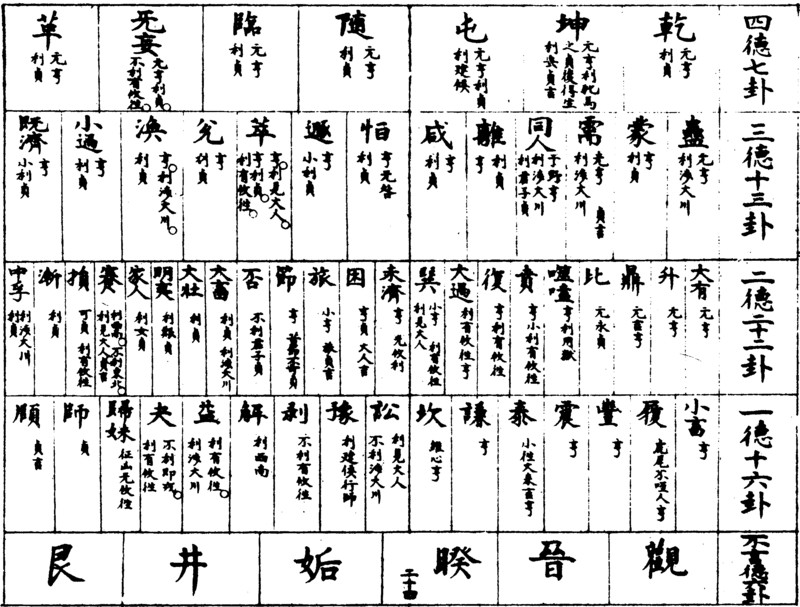 四德七卦
乾
元亨
利貞
坤
元亨利牝馬
之貞後得主
利安貞吉
屯
元亨利貞
利建候
隨
元亨
利貞
臨
元亨
利貞
无妄
元亨利貞
不利有攸往
革
元亨
利貞
三德十三卦
蠱
元亨
利涉大川
蒙
亨
利貞
需
光亨 貞吉
利涉大川
同人
于野亨
利涉大川
利君子貞
離
利貞
亨
咸
亨
利貞
恒
亨无咎
利貞
遯
亨
小利貞
萃
亨利見大人
亨利貞
利有攸往
兌
亨
利貞
渙
亨利涉大川
利貞
小過
亨
利貞
既濟
亨
小利貞
二德二十二卦
大有
元亨
升
元亨
鼎
元吉亨
比
元永貞
噬嗑
亨利用獄
賁
亨小利有攸往
復
亨利有攸往
大過
利有攸往亨
巽
小亨 利有攸往
利見大人
未濟
亨 无攸利
困
亨貞大人吉
旅
小亨 旅貞吉
節
亨
否
不利君子貞
大畜
利貞 利涉大川
大壯
利貞
明夷
利艱貞
家人
利女貞
蹇
利西南不利東北
利見大人貞吉
損
可貞 利有攸往
漸
利貞
中孚
利涉大川
利貞
一德十六卦
小畜
亨
履
虎尾不咥人亨
豐
亨
震
亨
泰
小往大來吉亨
謙
亨
坎
維心亨
訟
利見大人
不利涉大川
豫
利建侯行師
剥
不利有攸往
解
利西南
益
利有攸往
利涉大川
夬
不利即戎
利有攸往
歸妹
征凶无攸往
師
貞
頤
貞吉
不言德卦
觀
晉
睽
二十四
姤
井
艮